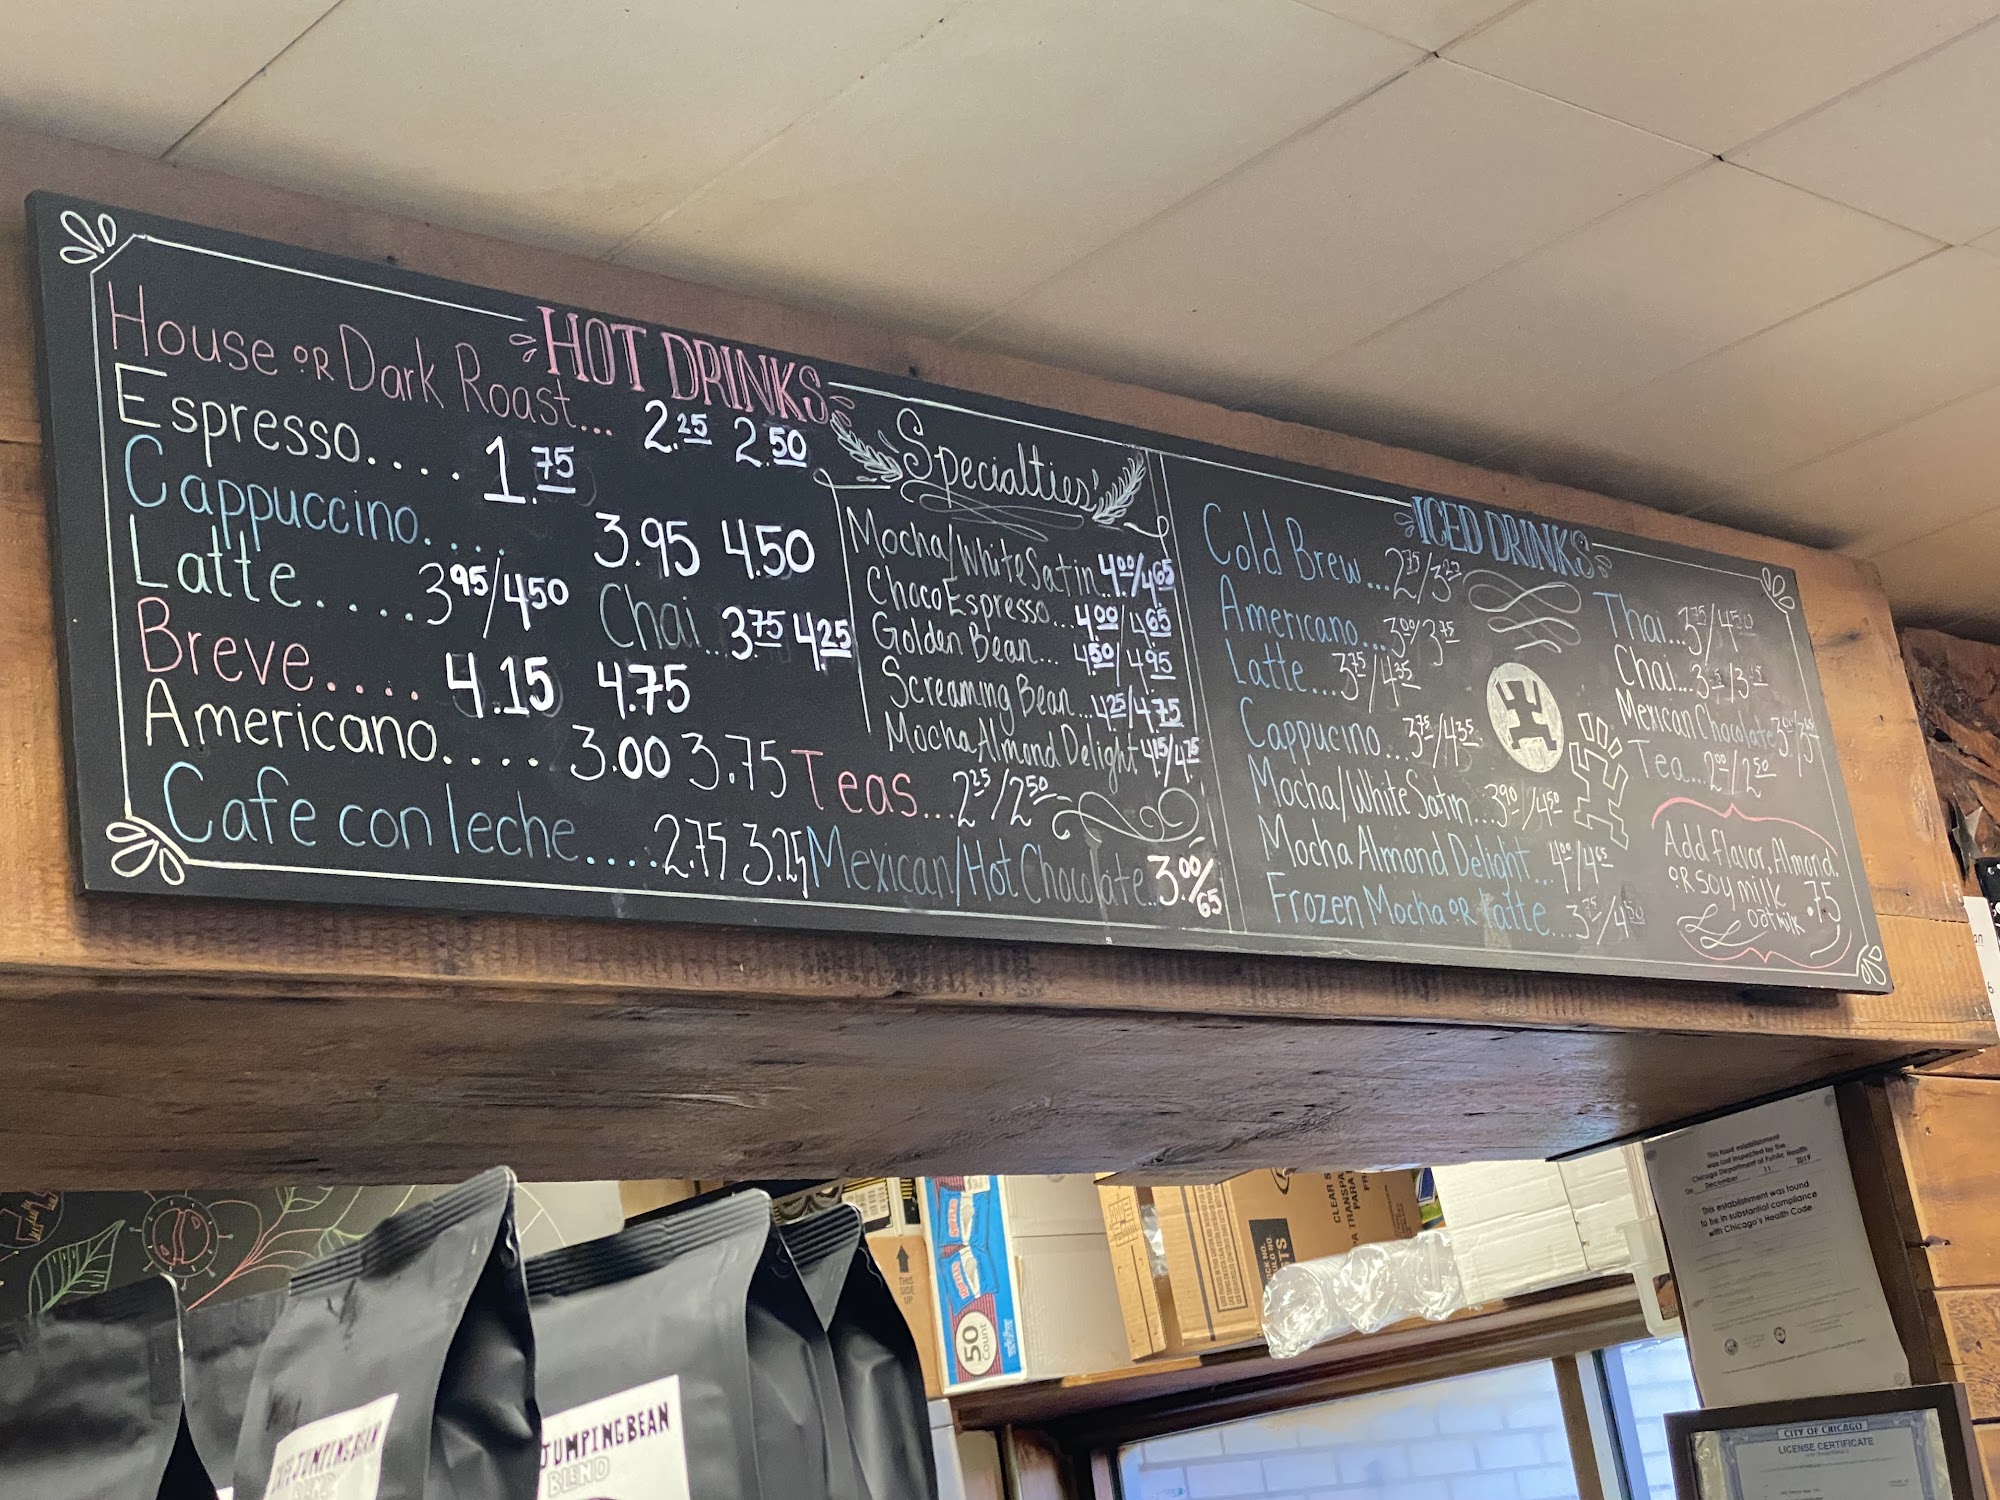 HOT DRINKS
House OR Dark Roast... 2.25 2.50
Espresso.... 1.75
Cappuccino.... 3.95 4.50
Latte.... 3.95/4.50
Chai... 3.75 4.25
Breve.... 4.15 4.75
Americano.... 3.00 3.75
Teas... 2.25/2.50
Cafe con leche.... 2.75 3.25
Mexican/Hot Chocolate... 3.00/65
Specialties
Mocha/White Satin.. 4.00/4.65
Choco Espresso... 4.00/4.65
Golden Bean... 4.50/4.95
Screaming Bean... 4.25/4.75
Mocha Almond Delight 4.15/4.75
ICED DRINKS
Cold Brew... 2.75/3.
Americano... 3.00/3.75
Latte... 3.75/4.35
Cappucino... 3.75/4.35
Mocha/White Satin... 3.90/4.50
Mocha Almond Delight... 4.00/4.65
Frozen Mocha OR Latte... 3.75/4.50
Thai... 3.75/4.50
Chai...
Mexican Chocolate 3.00/3.65
Tea... 2.00/2.50
Add flavor, Almond,
OR Soy milk .75
oatmilk
This food establishment
was last inspected by the
Chicago Department of Public Health
On December 11 2019
This establishment was found
to be in substantial compliance
with Chicago's Health Code
CITY OF CHICAGO
LICENSE CERTIFICATE
CLEAR
50
Count
THIS
SIDE
UP
JUMPING BEAN
BLEND
JUMPING BEAN
BLEND